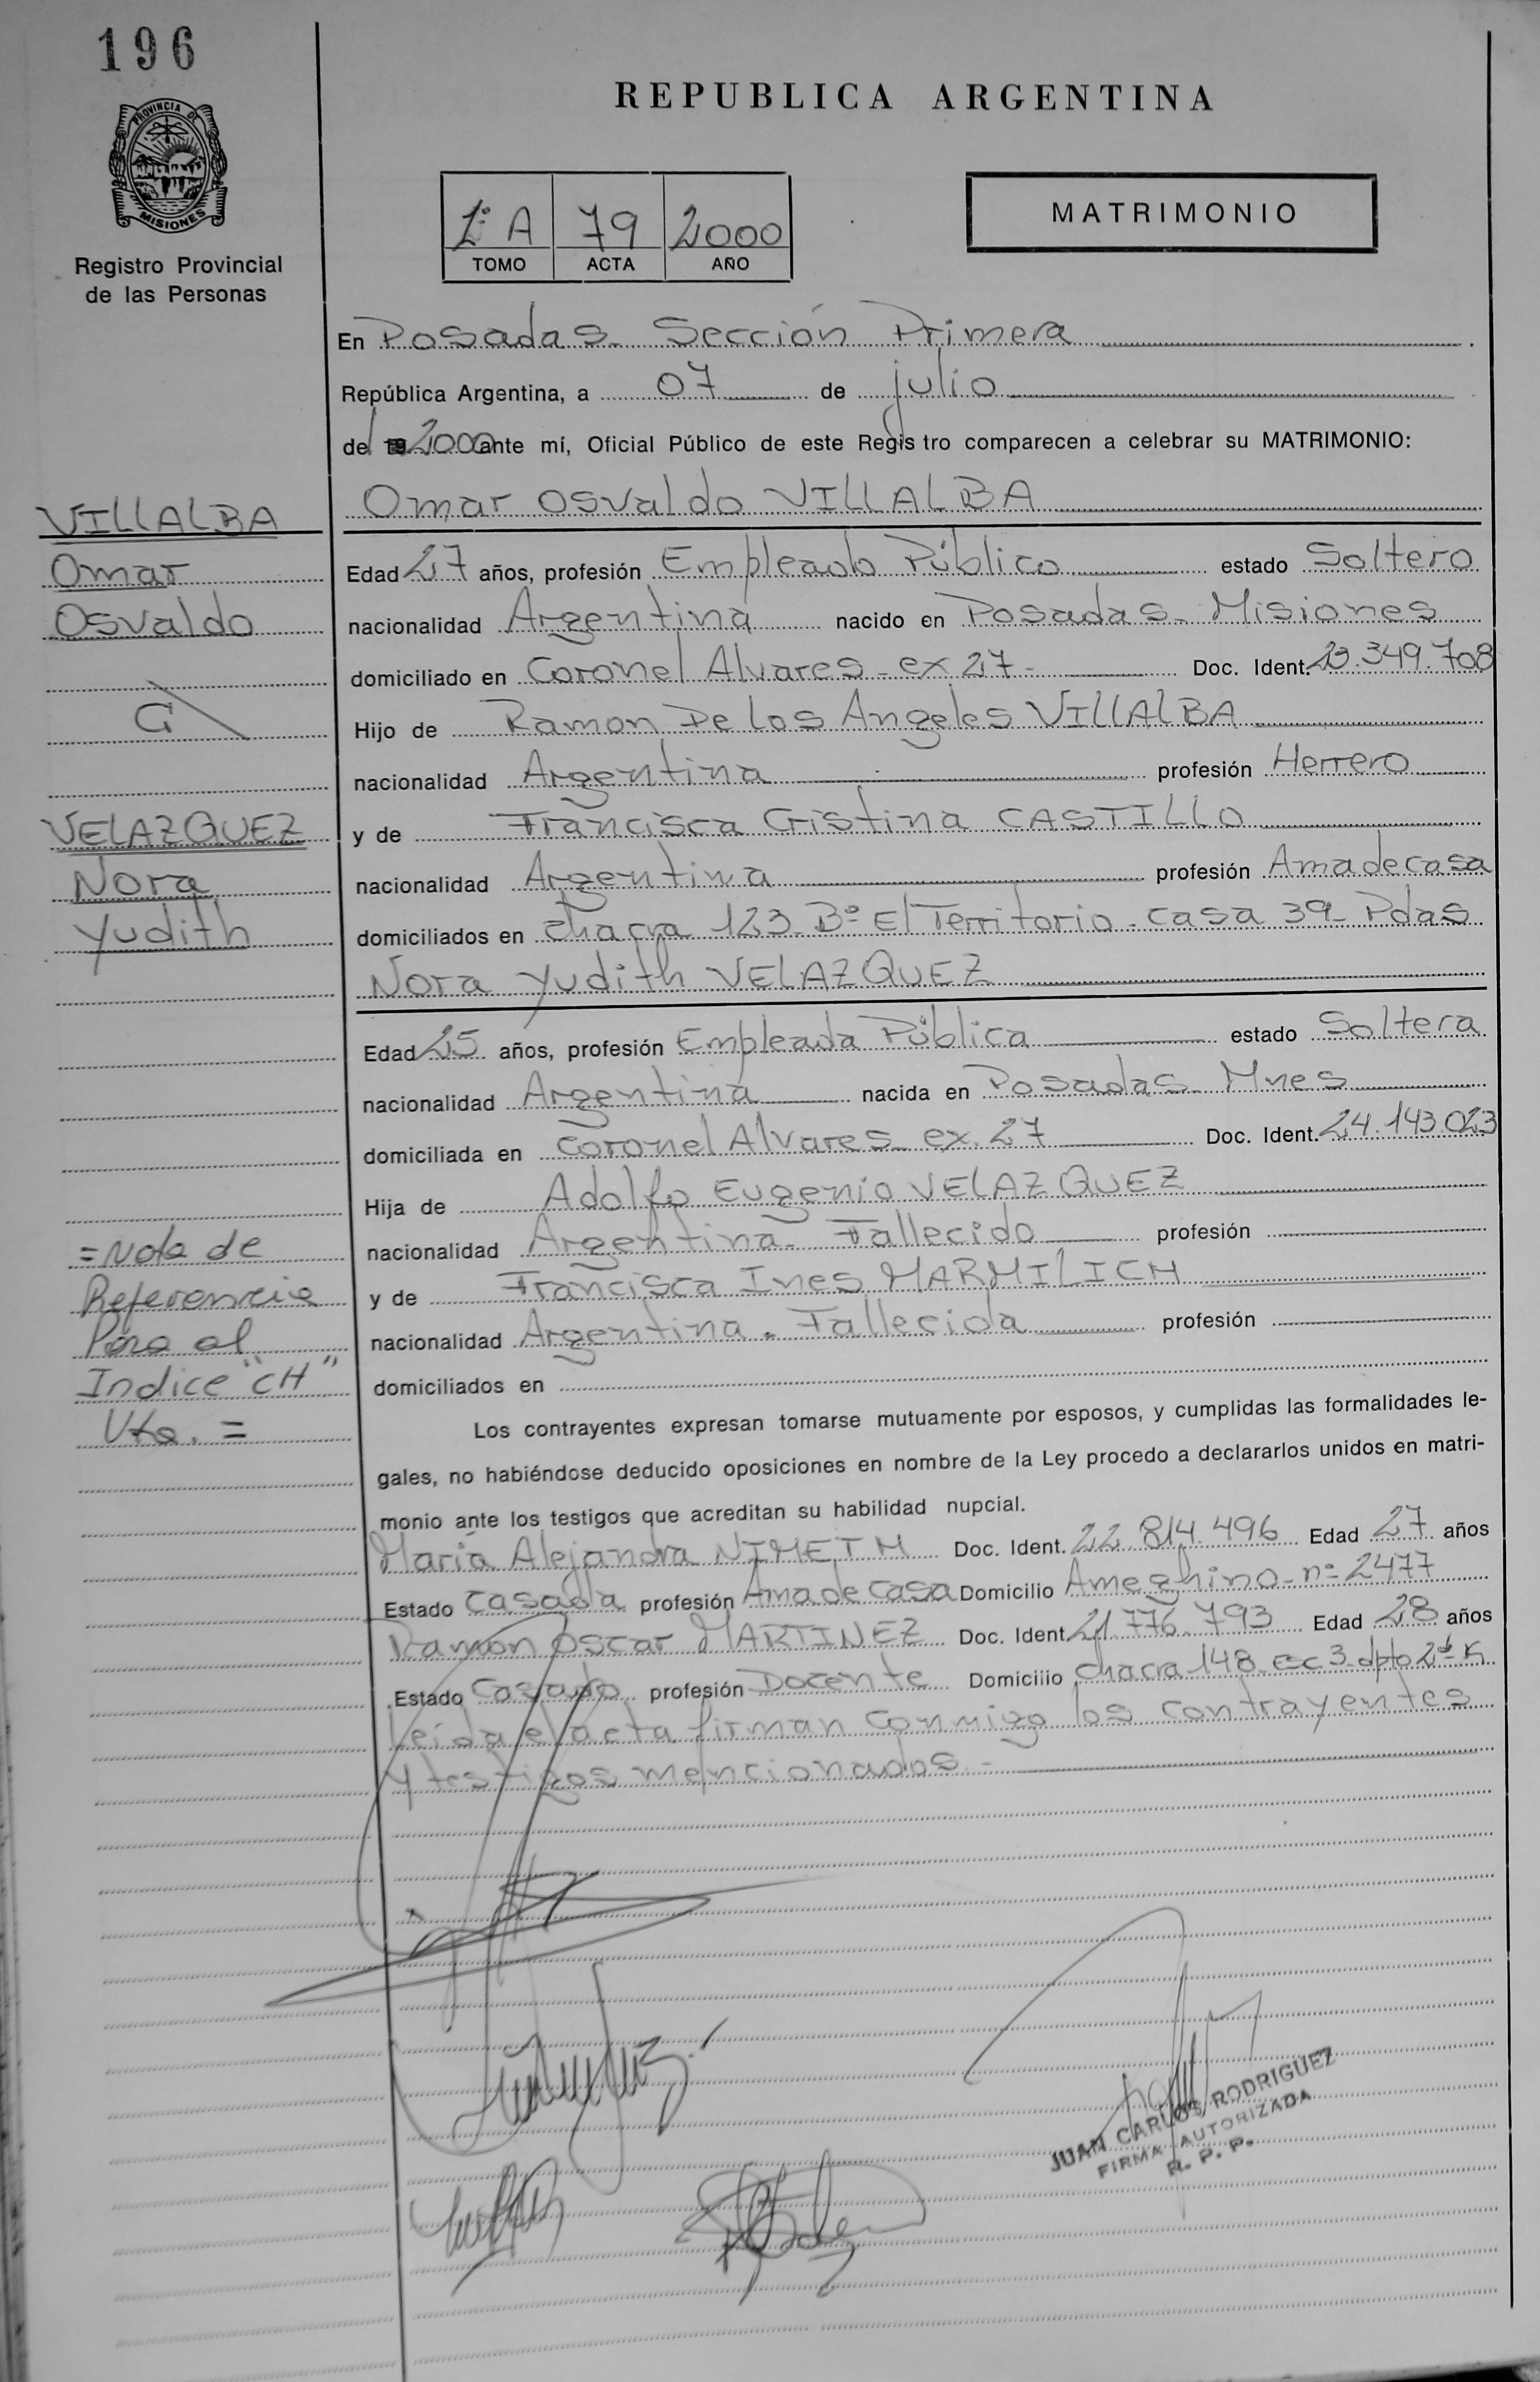 196
REPUBLICA ARGENTINA
PROVINCIA DE
MISIONES
Registro Provincial
de las Personas
1º A 79 2000
TOMO ACTA AÑO
MATRIMONIO
En Posadas - Sección Primera
República Argentina, a 07 de julio
del 2000 ante mí, Oficial Público de este Registro comparecen a celebrar su MATRIMONIO:
Omar Osvaldo VILLALBA
VILLALBA
Omar
Osvaldo
C/
VELAZQUEZ
Nora
Yudith
Edad 27 años, profesión Empleado Público estado Soltero
nacionalidad Argentina nacido en Posadas - Misiones
domiciliado en Coronel Alvares - ex 27 - Doc. Ident. 23.349.708
Hijo de Ramon De Los Angeles VILLALBA
nacionalidad Argentina profesión Herrero
y de Francisca Cristina CASTILLO
nacionalidad Argentina profesión Ama de casa
domiciliados en chacra 123 - Bº El Territorio - casa 39 - Pdas
Nora Yudith VELAZQUEZ
Edad 25 años, profesión Empleada Pública estado Soltera
nacionalidad Argentina nacida en Posadas - Mnes
domiciliada en Coronel Alvares - ex. 27 Doc. Ident. 24.143.023
Hija de Adolfo Eugenio VELAZQUEZ
nacionalidad Argentina - Fallecido profesión
y de Francisca Ines MARMILICH
nacionalidad Argentina - Fallecida profesión
domiciliados en
= Nota de
Referencia
Para al
Indice "CH"
Vta. =
Los contrayentes expresan tomarse mutuamente por esposos, y cumplidas las formalidades le-
gales, no habiéndose deducido oposiciones en nombre de la Ley procedo a declararlos unidos en matri-
monio ante los testigos que acreditan su habilidad nupcial.
María Alejandra NIMETH Doc. Ident. 22.814.496 Edad 27 años
Estado Casada profesión Ama de casa Domicilio Ameghino - nº 2477
Ramon Oscar MARTINEZ Doc. Ident. 21.776.793 Edad 28 años
Estado Casado profesión Docente Domicilio chacra 148 - 3 - dpto 2º K
Leída el acta firman conmigo los contrayentes
y testigos mencionados.-
JUAN CARLOS RODRIGUEZ
FIRMA AUTORIZADA
R. P. P.